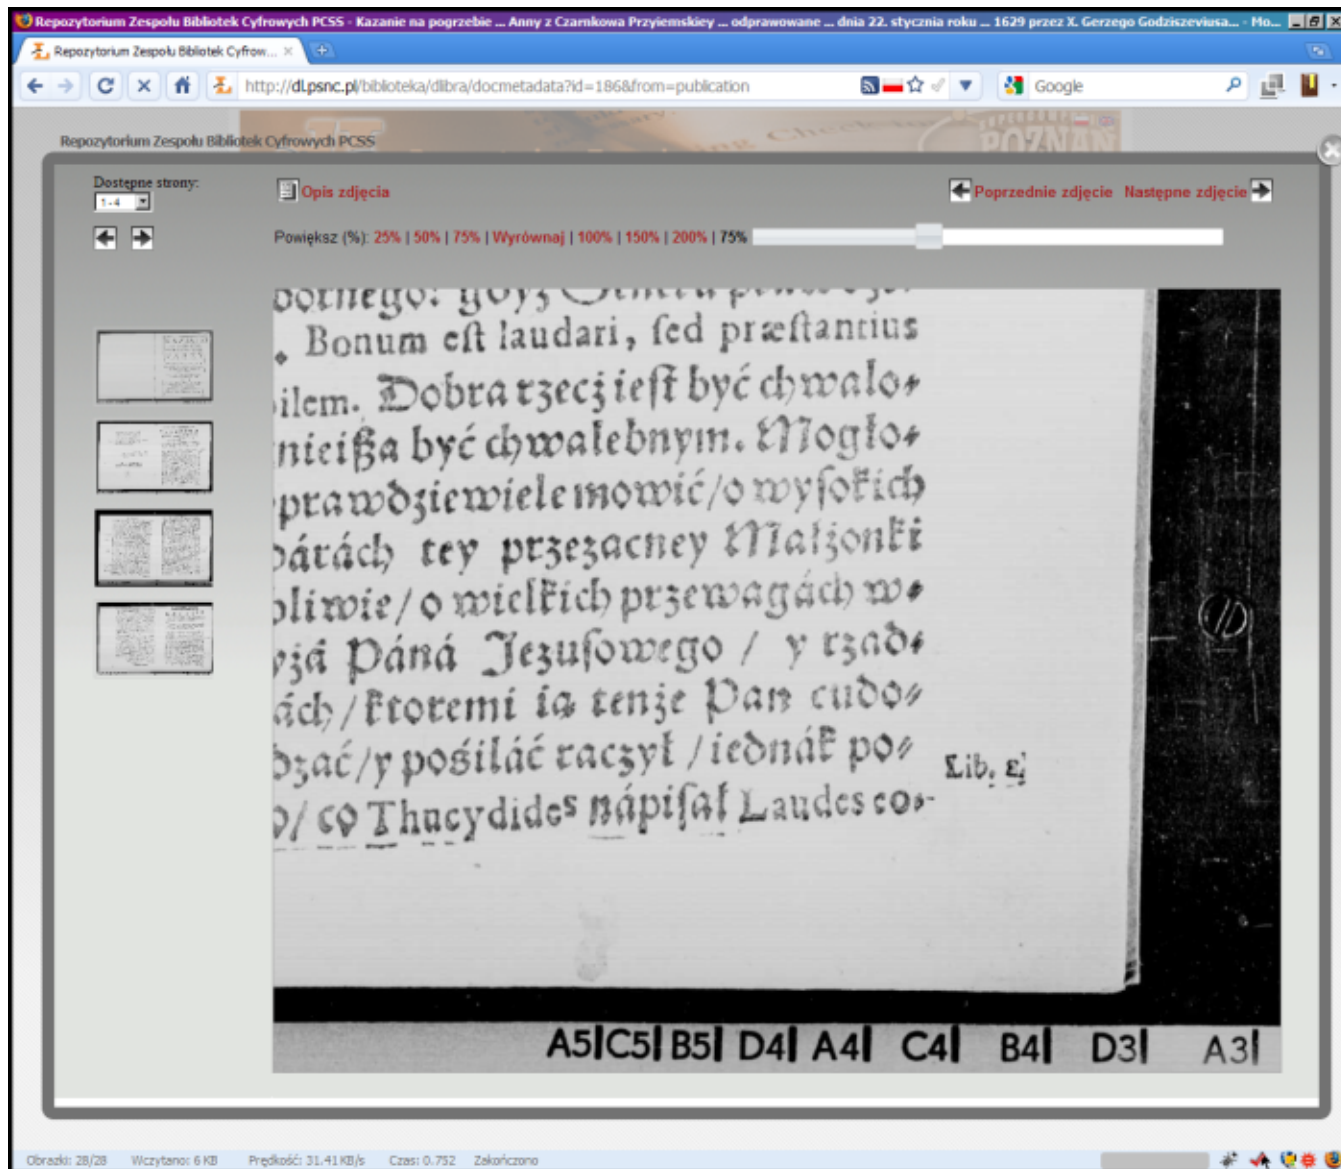 Repozytorium Zespołu Bibliotek Cyfrowych PCSS - Kazanie na pogrzebie ... Anny z Czarnkowa Przyiemskiey ... odprawowane ... dnia 22. stycznia roku ... 1629 przez X. Gerzego Godziszeviusa... - Mo...
Repozytorium Zespołu Bibliotek Cyfrow...
http://dl.psnc.pl/biblioteka/dlibra/docmetadata?id=186&from=publication
Google
POZNAŃ
Repozytorium Zespołu Bibliotek Cyfrowych PCSS
Dostępne strony:
1-4
Opis zdjęcia
Poprzednie zdjęcie Następne zdjęcie
Powiększ (%): 25% | 50% | 75% | Wyrównaj | 100% | 150% | 200% | 75%
Bonum eſt laudari, ſed præſtantius
ilem. Dobra rzecż ieſt być chwalo⸗
nieißa być chwalebnym. Mogło⸗
prawdziewiele mowić/o wyſokich
árách tey przezacney Małżonki
bliwie/ o wielkich przewagách w⸗
yżá Páná Jezuſowego / y rząd⸗
ách/ktoremi ią tenże Pan cudo⸗
dzać/y pośiláć raczył /iednák po⸗
o/ co Thucydides nápiſał Laudes eo-
Lib. 2.
A5 C5 B5 D4 A4 C4 B4 D3 A3
Obrazki: 28/28 Wczytano: 6 KB Prędkość: 31.41 KB/s Czas: 0.752 Zakończono